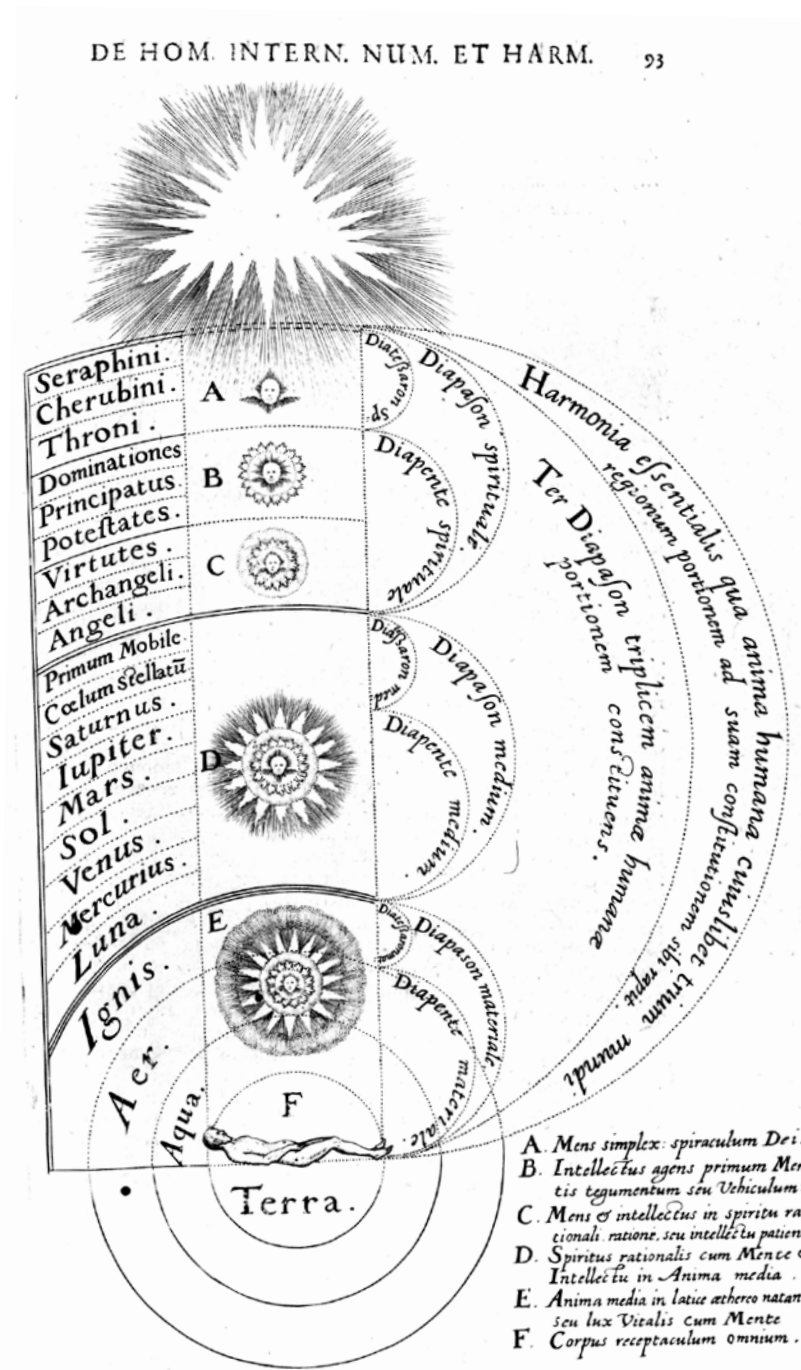 DE HOM. INTERN. NUM. ET HARM. 93
Seraphini.
Cherubini.
Throni.
Dominationes
Principatus
Poteſtates.
Virtutes.
Archangeli.
Angeli.
Primum Mobile
Cœlum Stellatū
Saturnus.
Iupiter.
Mars.
Sol.
Venus.
Mercurius.
Luna.
Ignis.
Aer.
Aqua.
Terra.
A
B
C
D
E
F
Diateſſaron sp.
Diapaſon spirituale.
Diapente spirituale
Diapaſon medium.
Diapente medium.
Diapason materiale
Diapente materiale.
Ter Diapaſon triplicem animæ humanæ
portionem conſtituens.
Harmonia eſſentialis qua anima humana cuiuslibet trium mundi
regionum portionem ad suam conſtitutionem sibi rapit.
A. Mens simplex: spiraculum Dei
B. Intellectus agens primum Men
tis tegumentum seu Vehiculum
C. Mens & intellectus in spiritu ra
cionali. ratione, seu intellectu patien
D. Spiritus rationalis cum Mente &
Intellectu in Anima media.
E. Anima media in latice æthereo natan
seu lux Vitalis cum Mente
F. Corpus receptaculum omnium.